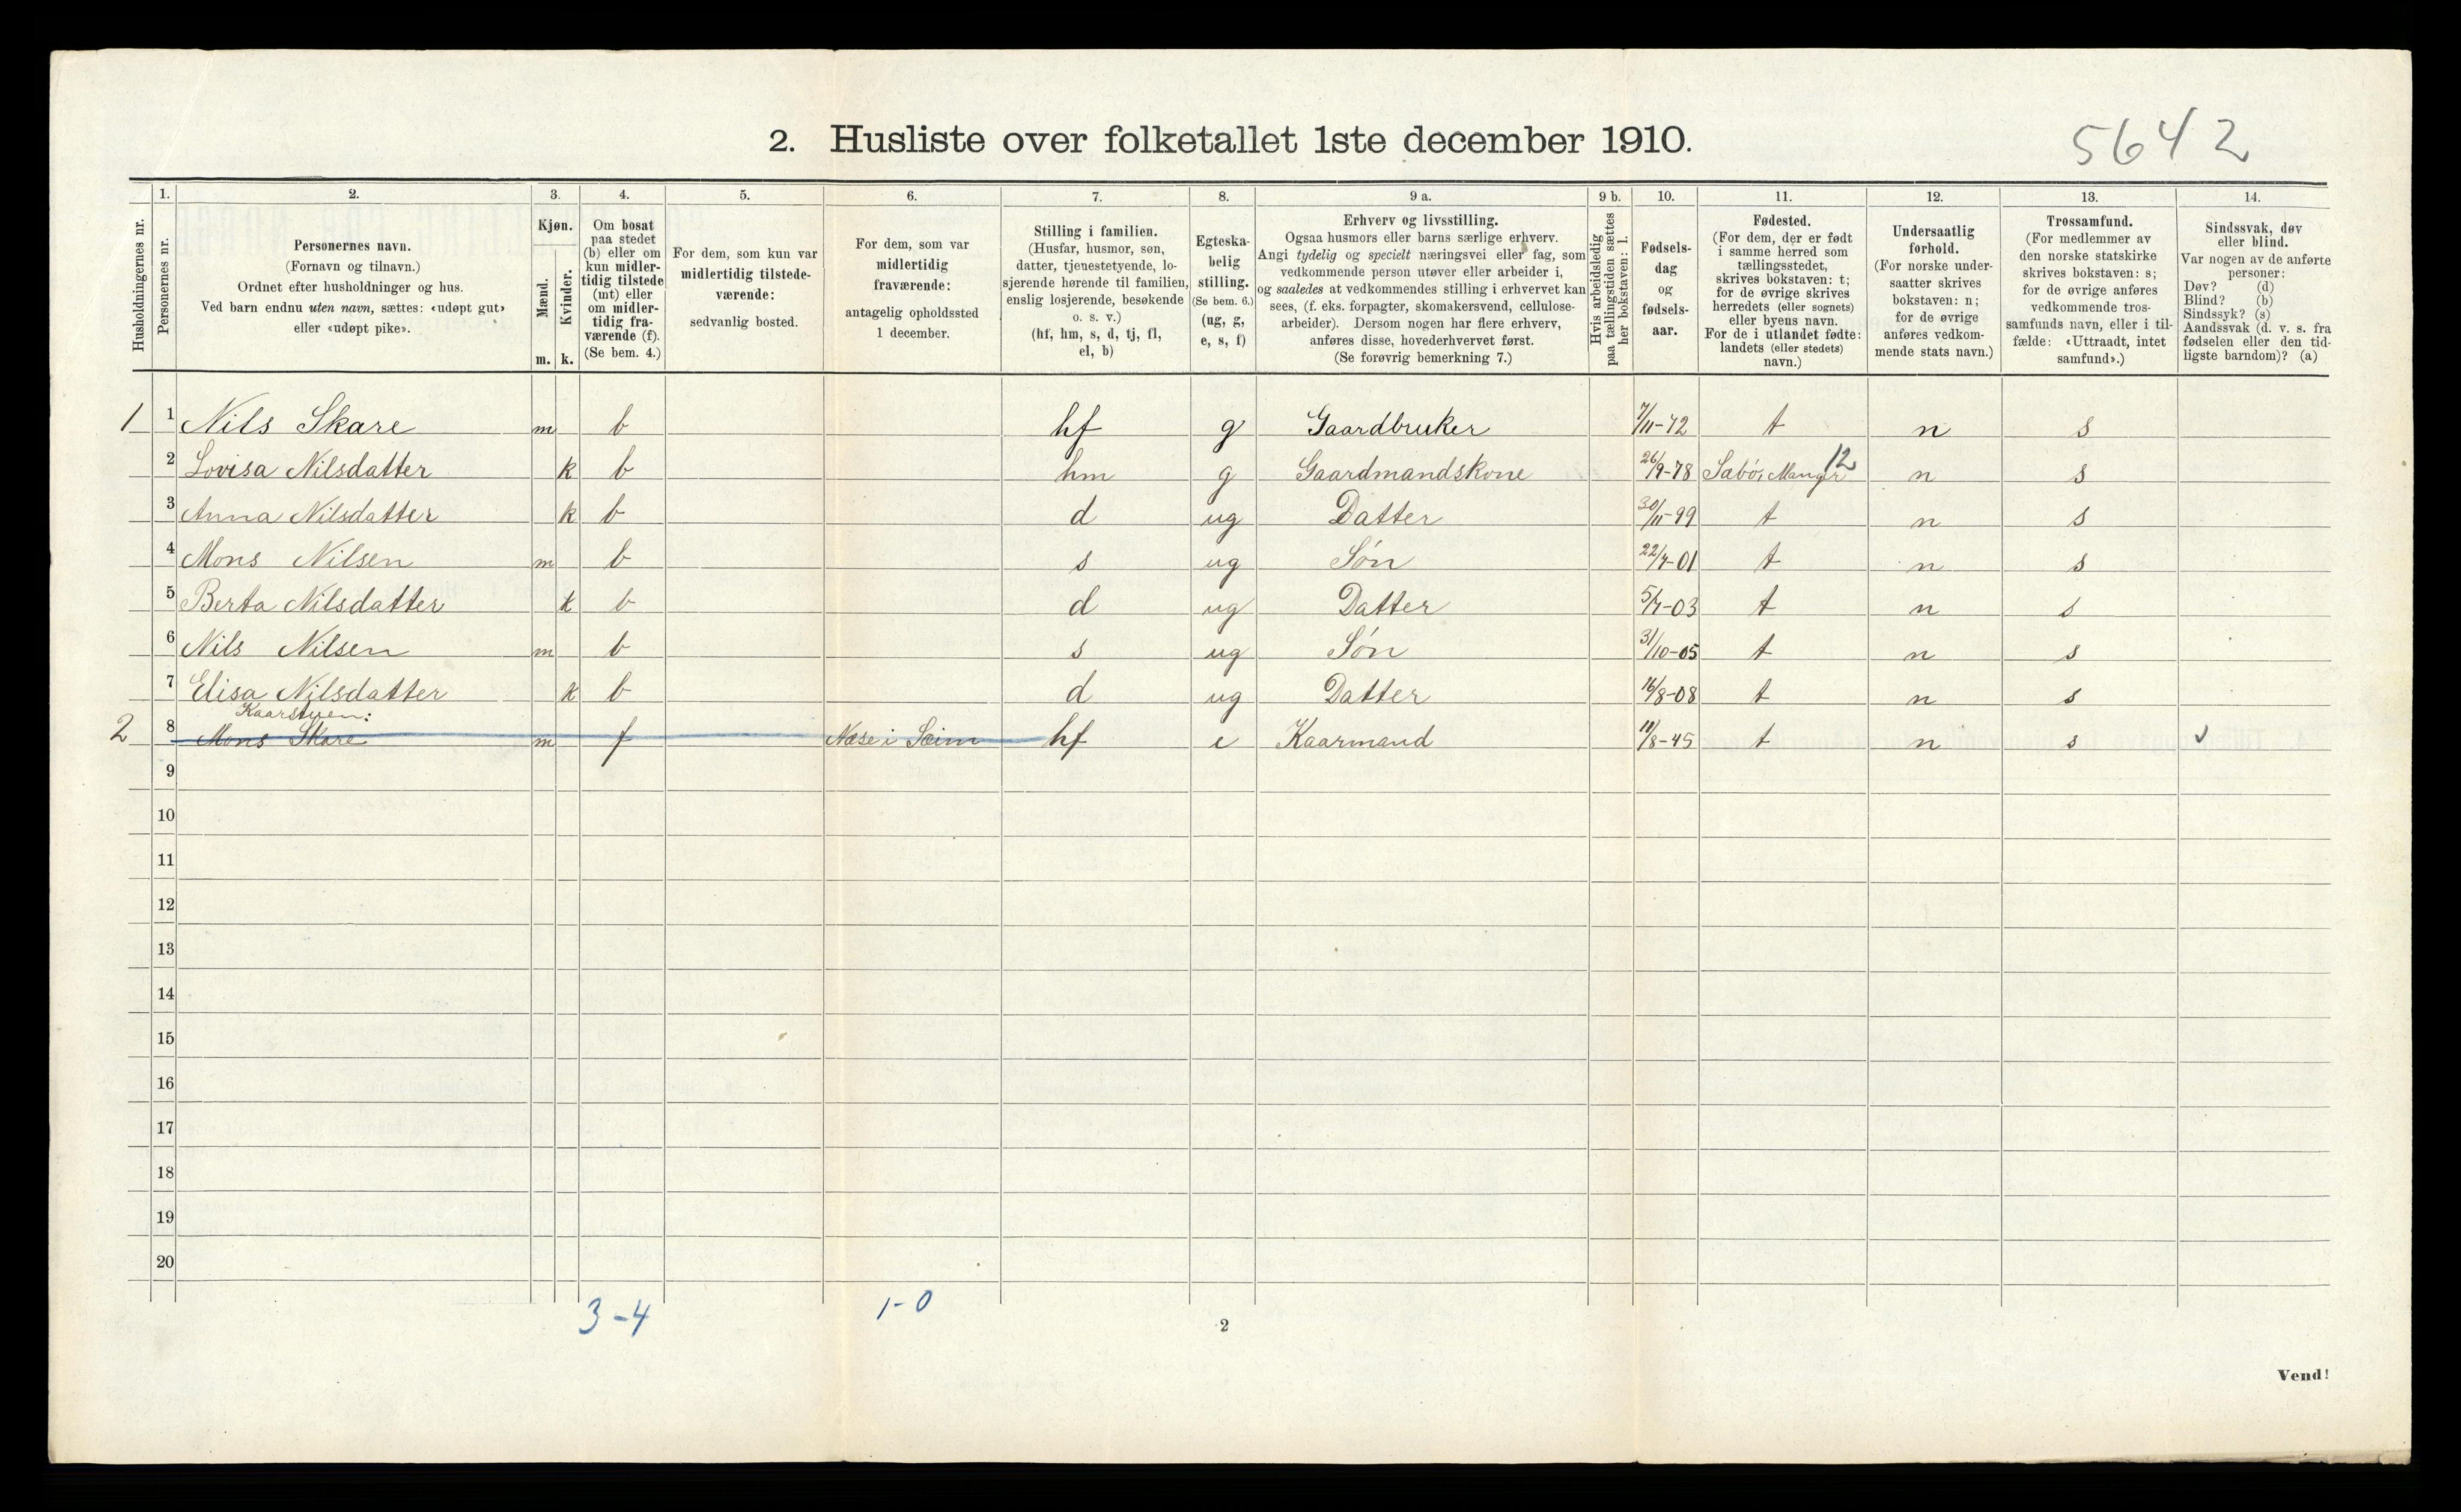 5642
2. Husliste over folketallet 1ste december 1910.
Husholdningernes nr.
1.
Personernes nr.
2.
Personernes navn.
(Fornavn og tilnavn.)
Ordnet efter husholdninger og hus.
Ved barn endnu uten navn, sættes: «udøpt gut»
eller «udøpt pike».
3.
Kjøn.
Mænd.
Kvinder.
m. k.
4.
Om bosat
paa stedet
(b) eller om
kun midler-
tidig tilstede
(mt) eller
om midler-
tidig fra-
værende (f).
(Se bem. 4.)
5.
For dem, som kun var
midlertidig tilstede-
værende:
sedvanlig bosted.
6.
For dem, som var
midlertidig
fraværende:
antagelig opholdssted
1 december.
7.
Stilling i familien.
(Husfar, husmor, søn,
datter, tjenestetyende, lo-
sjerende hørende til familien,
enslig losjerende, besøkende
o. s. v.)
(hf, hm, s, d, tj, fl,
el, b)
8.
Egteska-
belig
stilling.
(Se bem. 6.)
(ug, g,
e, s, f)
9 a.
Erhverv og livsstilling.
Ogsaa husmors eller barns særlige erhverv.
Angi tydelig og specielt næringsvei eller fag, som
vedkommende person utøver eller arbeider i,
og saaledes at vedkommendes stilling i erhvervet kan
sees, (f. eks. forpagter, skomakersvend, cellulose-
arbeider). Dersom nogen har flere erhverv,
anføres disse, hovederhvervet først.
(Se forøvrig bemerkning 7.)
9 b.
Hvis arbeidsledig
paa tællingstiden sættes
her bokstaven: l.
10.
Fødsels-
dag
og
fødsels-
aar.
11.
Fødested.
(For dem, der er født
i samme herred som
tællingsstedet,
skrives bokstaven: t;
for de øvrige skrives
herredets (eller sognets)
eller byens navn.
For de i utlandet fødte:
landets (eller stedets)
navn.)
12.
Undersaatlig
forhold.
(For norske under-
saatter skrives
bokstaven: n;
for de øvrige
anføres vedkom-
mende stats navn.)
13.
Trossamfund.
(For medlemmer av
den norske statskirke
skrives bokstaven: s;
for de øvrige anføres
vedkommende tros-
samfunds navn, eller i til-
fælde: «Uttraadt, intet
samfund».)
14.
Sindssvak, døv
eller blind.
Var nogen av de anførte
personer:
Døv? (d)
Blind? (b)
Sindssyk? (s)
Aandssvak (d. v. s. fra
fødselen eller den tid-
ligste barndom)? (a)
1 1 Nils Skare m b hf g Gaardbruker 7/11-72 t n s
2 Lovisa Nilsdatter k b hm g Gaardmandskone 26/9-78 Sæbø, Manger 12 n s
3 Anna Nilsdatter k b d ug Datter 30/11-99 t n s
4 Mons Nilsen m b s ug Søn 22/7-01 t n s
5 Berta Nilsdatter k b d ug Datter 5/7-03 t n s
6 Nils Nilsen m b s ug Søn 31/10-05 t n s
7 Elisa Nilsdatter k b d ug Datter 16/8-08 t n s
Kaarstuen:
2 8 Mons Skare m f Næse i Seim hf e Kaarmand 11/8-45 t n s
9
10
11
12
13
14
15
16
17
18
19
20
3-4 1-0
2
Vend!